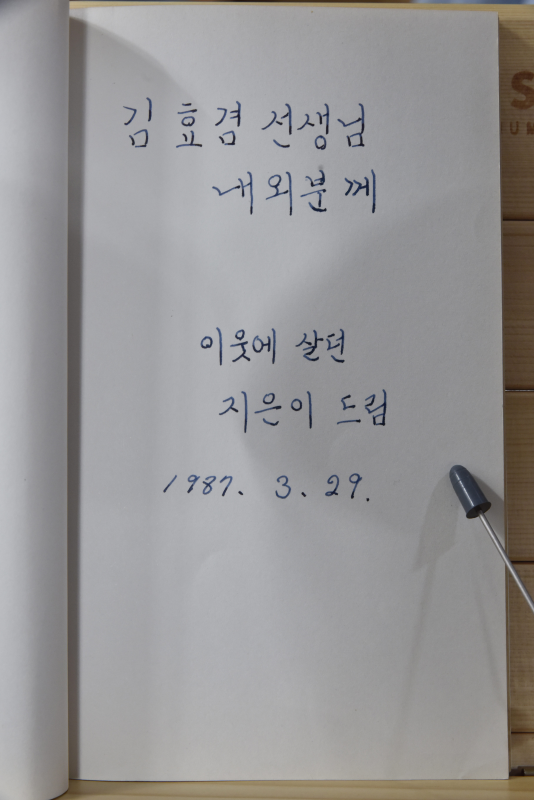 김 효겸 선생님
내외분께
이웃에 살던
지은이 드림
1987. 3. 29.
S